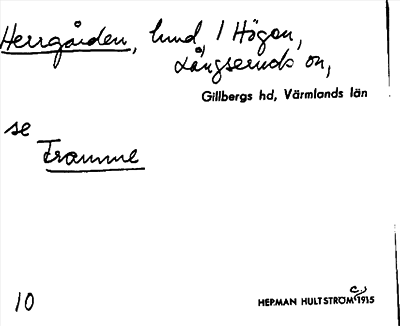 Herrgården, lund, 1 Högen,
Långseruds sn,
Gillbergs hd, Värmlands län
se
Tramme
10
HERMAN HULTSTRÖM 1915